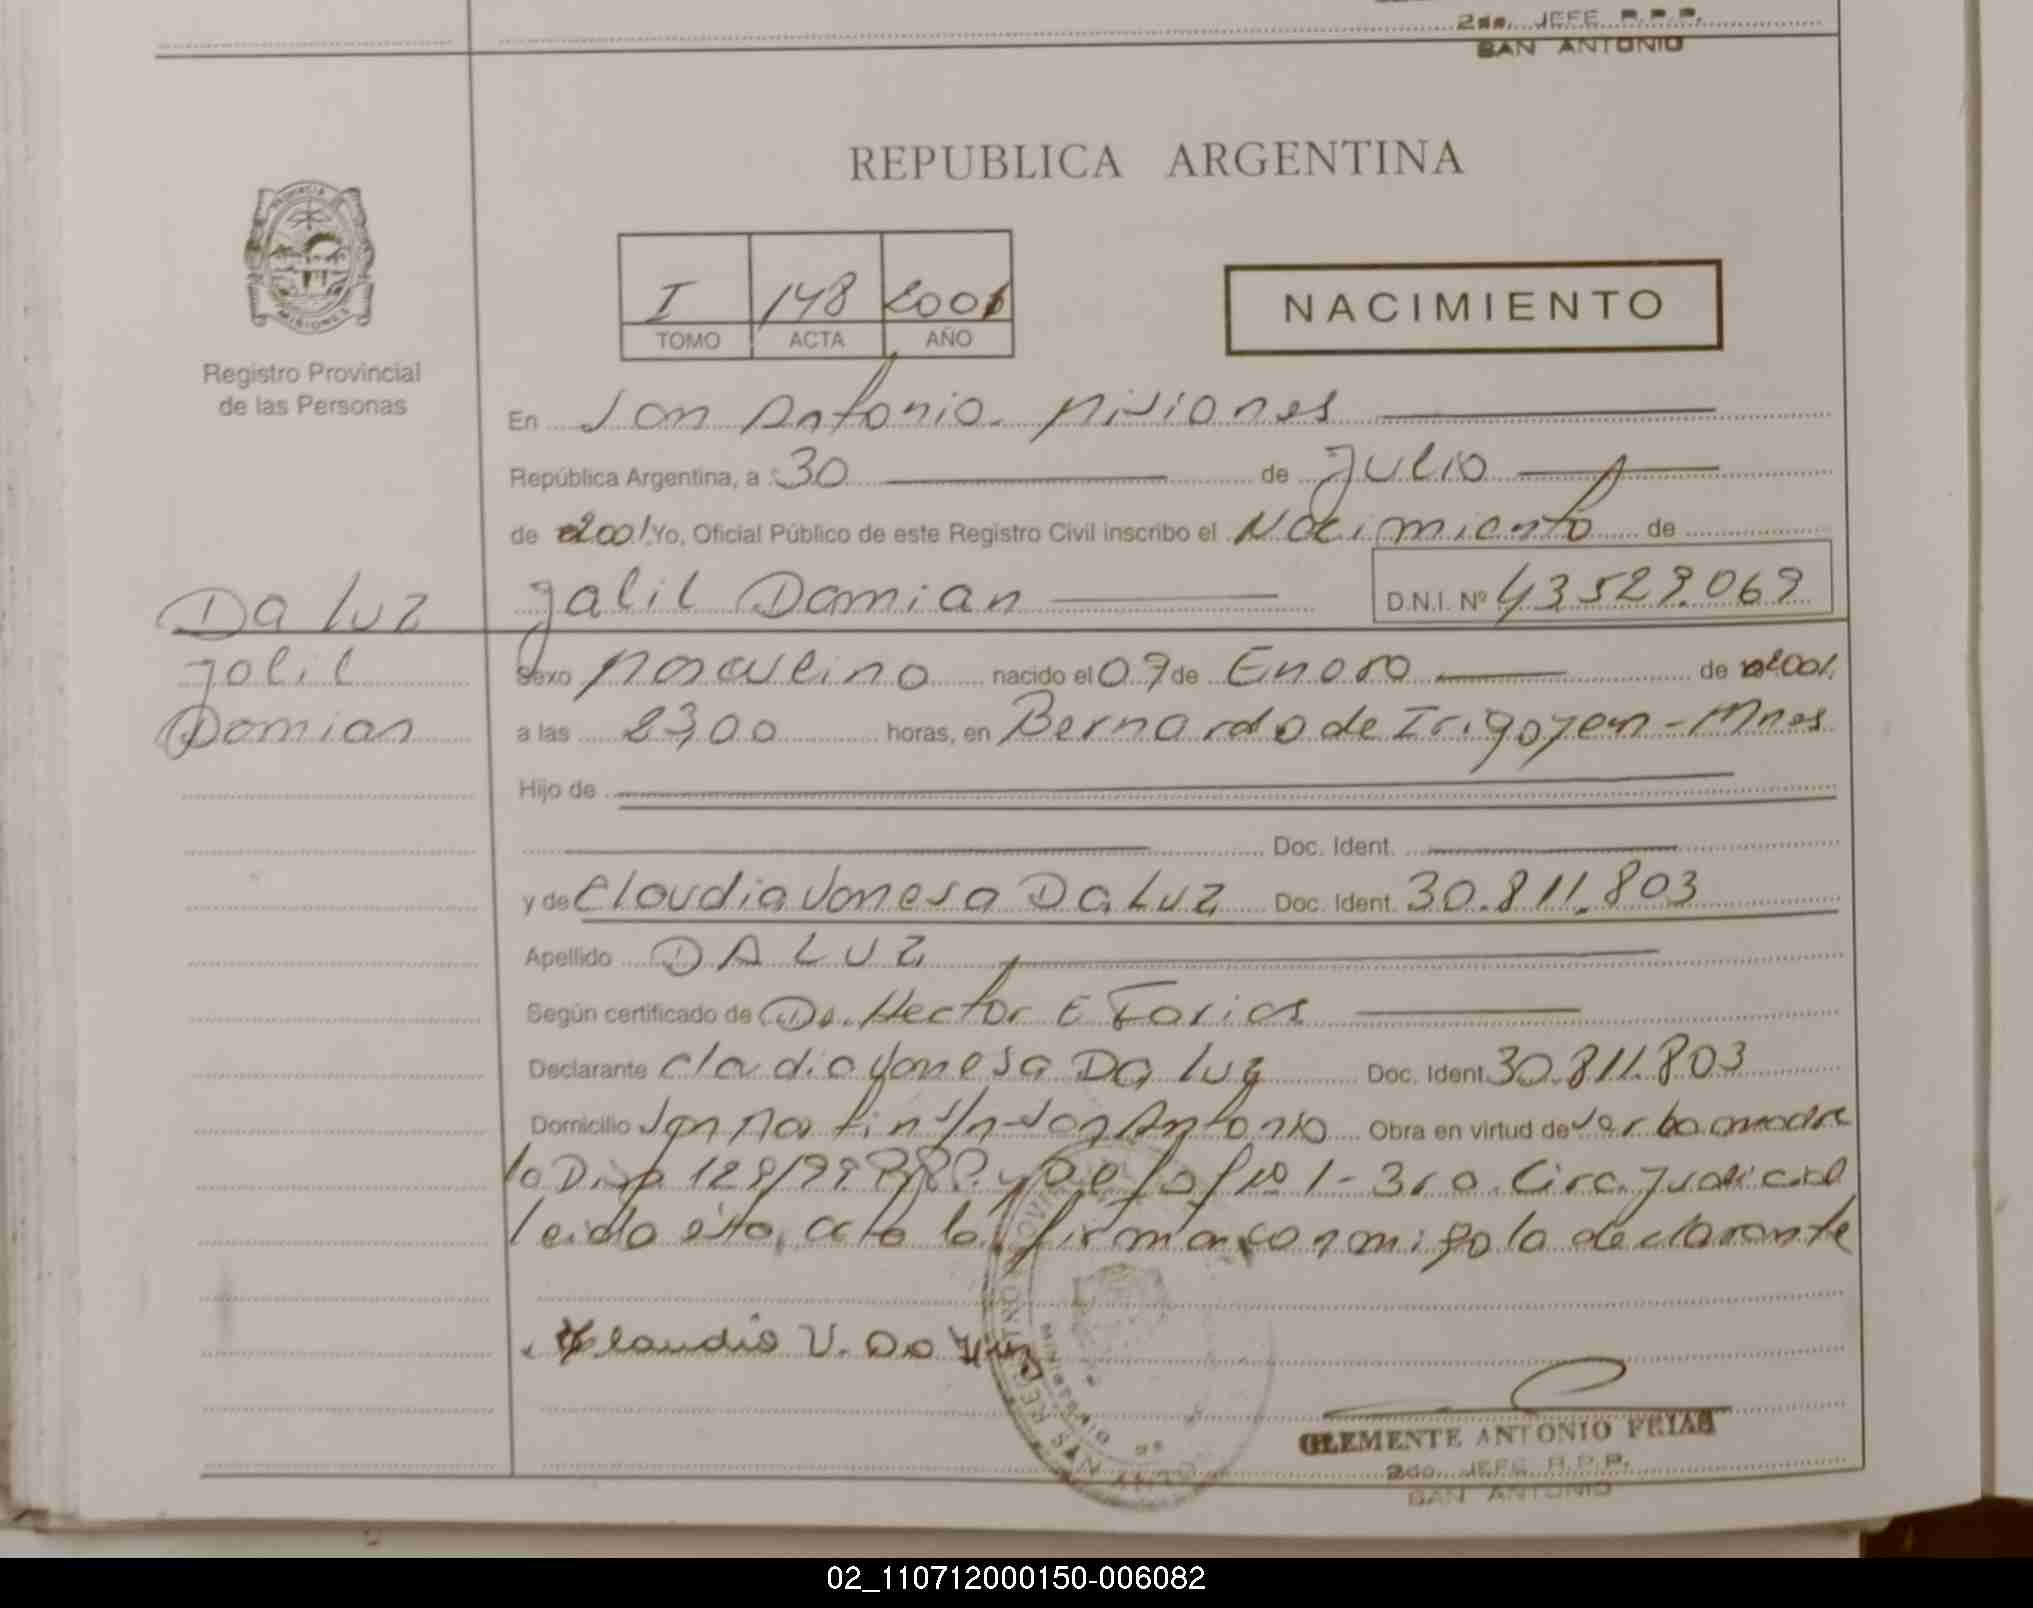 2do. JEFE R.P.P.
SAN ANTONIO
REPUBLICA ARGENTINA
PROVINCIA DE
MISIONES
Registro Provincial
de las Personas
I 148 2001
TOMO ACTA AÑO
NACIMIENTO
En San Antonio. Misiones
República Argentina, a 30 de Julio
de 2001 Yo, Oficial Público de este Registro Civil inscribo el Nacimiento de
Jalil Damian D.N.I. Nº 43529.069
Da Luz
Jalil
Damian
Sexo Masculino nacido el 07 de Enero de 2001.
a las 23,00 horas, en Bernardo de Irigoyen - Mnes
Hijo de
Doc. Ident.
y de Claudia Vanesa Da Luz Doc. Ident. 30.811.803
Apellido DA LUZ
Según certificado de Dr. Hector E Farias
Declarante Claudia Vanesa Da Luz Doc. Ident. 30.811.803
Domicilio San Martin S/n - San Antonio Obra en virtud de
la Disp 129/99 1 - 3ra. Circ. Judicial
leida esta acta la firma conmigo la declarante
Claudia V. Da Luz
CLEMENTE ANTONIO FRIAS
2do. JEFE R.P.P.
SAN ANTONIO
02_110712000150-006082